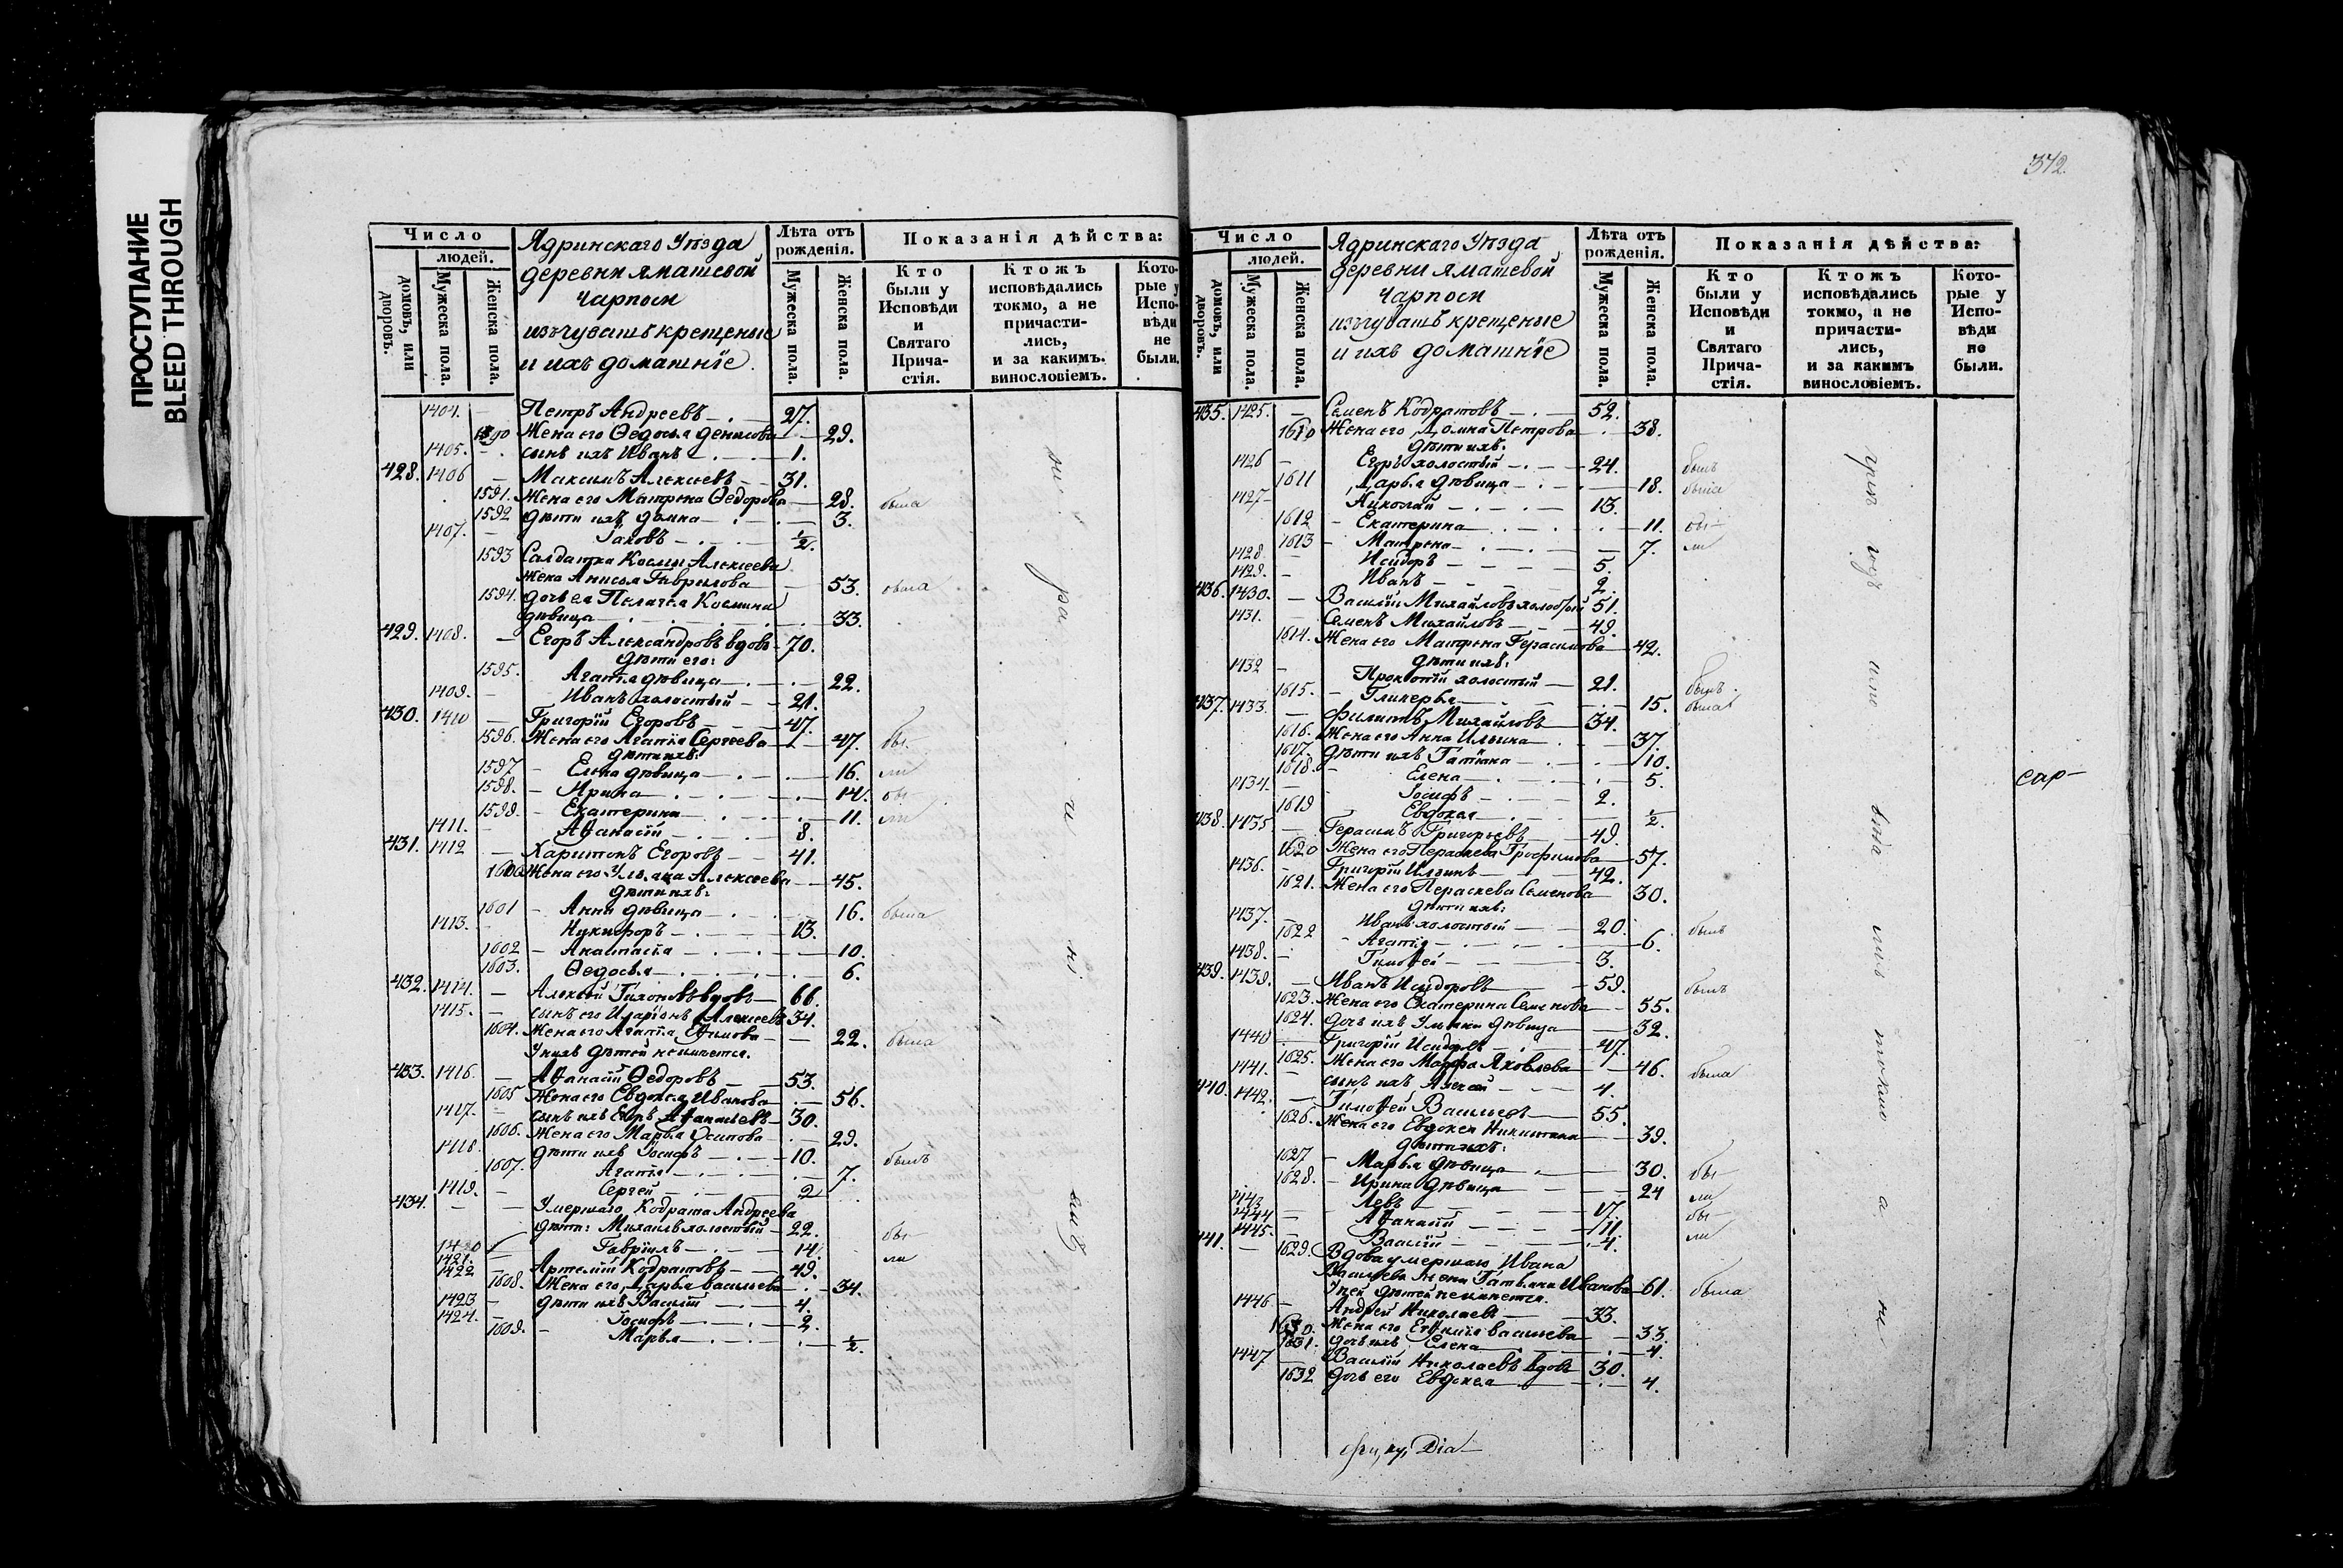 ПРОСТУПАНИЕ
BLEED THROUGH
Число
людей.
домовъ, или дворовъ.
Мужеска пола.
Женска пола.
Ядринскаго Уѣзда
деревни Яматевой
Чарпоси
изъ чувашъ крещеные
и ихъ домашнїе.
Лѣта отъ рожденія.
Мужеска пола.
Женска пола.
Показанія дѣйства:
Кто были у Исповѣди и Святаго Прича-стія.
Ктожъ исповѣдались токмо, а не причасти-лись, и за какимъ. винословіемъ.
Кото-рые у Испо-вѣди не были.
1404. — Петръ Андреевъ 27.
1590 Жена его Ѳедосья Денисова 29.
1405. сынъ ихъ Иванъ 1.
428. 1406 — Максимъ Алексеевъ 31.
1591. Жена его Матрена Ѳедорова 28. была
1592 дѣти ихъ Домна 3.
1407. Їаковъ 1/2.
1593 Салдатка Космы Алексеева
жена Анисья Гаврилова 53. была
1594. дочь ея Пелагея Космина
дѣвица 33.
429. 1408. — Егоръ Александровъ вдовъ 70.
дѣти его:
1595. Агатїя дѣвица 22.
1409. Иванъ холостый 21.
430. 1410 — Григорїй Егоровъ 47.
1596. Жена его Агатїя Сергеева 47. бы-
дѣти ихъ:
1597 Елена дѣвица 16. ли
1598. Ирина 14. бы-
1599. Екатерина 11. ли
1411. Аѳанасїй 8.
431. 1412 — Харитонъ Егоровъ 41.
1600 Жена его Ульяна Алексеева 45.
дѣти ихъ:
1601 Анна дѣвица 16. была
1413. Никифоръ 13.
1602 Анастасїя 10.
1603. Ѳедосья 6.
432. 1414. — Алексей Тихоновъ вдовъ 66.
1415. — сынъ его Иларїонъ Алексеевъ 34.
1604. Жена его Агатїя Еѳимова 22. была
У нихъ дѣтей не имеется.
433. 1416. — Аѳанасїй Ѳедоровъ 53.
1605 Жена его Евдокея Иванова 56.
1417. сынъ ихъ Егоръ Аѳанасьевъ 30.
1606. Жена его Марья Осипова 29.
1418. дѣти ихъ Їосифъ 10. былъ
1607. Агатїя 7.
1419. Сергей 2
434. — — Умершаго Кодрата Андреева
дѣти: Михаилъ холостый 22. бы-
1420 Гаврїилъ 14. ли
1421.
1422 — Артемїй Кодратовъ 49.
1608. Жена его Дарья Васильева 34.
1423 дѣти ихъ Василїй 4.
1424. Їосифъ 2.
1609. Марья 1/2.
372.
Число
людей.
домовъ, или дворовъ.
Мужеска пола.
Женска пола.
Ядринскаго Уѣзда
деревни Яматевой
Чарпоси
изъ чувашъ крещеные
и ихъ домашнїе
Лѣта отъ рожденія.
Мужеска пола.
Женска пола.
Показанія дѣйства:
Кто были у Исповѣди и Святаго Прича-стія.
Ктожъ исповѣдались токмо, а не причасти-лись, и за какимъ винословіемъ.
Кото-рые у Испо-вѣди не были.
435. 1425. — Семенъ Кодратовъ 52.
1610 Жена его Домна Петрова 38.
дѣти ихъ:
1426 Егоръ холостый 24. былъ
1611 Дарья дѣвица 18. была
1427 Николай 13.
1612 Екатерина 11. бы-
1613 Матрена 7. ли
1428. Исидоръ 5.
1429. Иванъ 2.
436. 1430. — Василїй Михайловъ холостый 51.
1431. — Семенъ Михайловъ 49.
1614. Жена его Матрена Герасимова 42.
дѣти ихъ:
1432 Прокопїй холостый 21. былъ
1615. Гликерья 15. была
437. 1433. — Филипъ Михайловъ 34.
1616. Жена его Анна Ильина 37.
1617. дѣти ихъ Татїяна 10.
1618. Елена 5.
1434. Їосифъ 2.
1619 Евдокея 1/2.
438. 1435. — Герасимъ Григорьевъ 49.
1620 Жена его Пераскева Трофимова 57.
1436. Григорїй Ильинъ 42.
1621. Жена его Пераскева Семенова 30.
дѣти ихъ:
1437. Иванъ холостый 20. былъ
1622 Агатїя 6.
1438. Тимоѳей 3.
439. 1439. — Иванъ Исидоровъ 59. былъ
1623. Жена его Екатерина Семенова 55.
1624. дочь ихъ Ульяна дѣвица 32.
1440 Григорїй Исидоровъ 47.
1625. Жена его Марфа Яковлева 46. была
1441. сынъ ихъ Алексей 4.
440. 1442. — Тимоѳей Васильевъ 55.
1626. Жена его Евдокея Никитина 39.
дѣти ихъ:
1627 Марья дѣвица 30. бы-
1628. Ирина дѣвица 24 ли
1443 Левъ 17. бы-
1444 Аѳанасїй 11. ли
1445. Василїй 4.
441. — 1629. Вдова умершаго Ивана
Васильева жена Татьяна Иванова 61. была
У ней дѣтей не имеется.
1446 Андрей Николаевъ 33.
1630. Жена его Евѳимїя Васильева 33.
1631. дочь ихъ Елена 4.
1447 Василїй Николаевъ вдовъ 30.
1632 дочь его Евдокея 4.
сар-